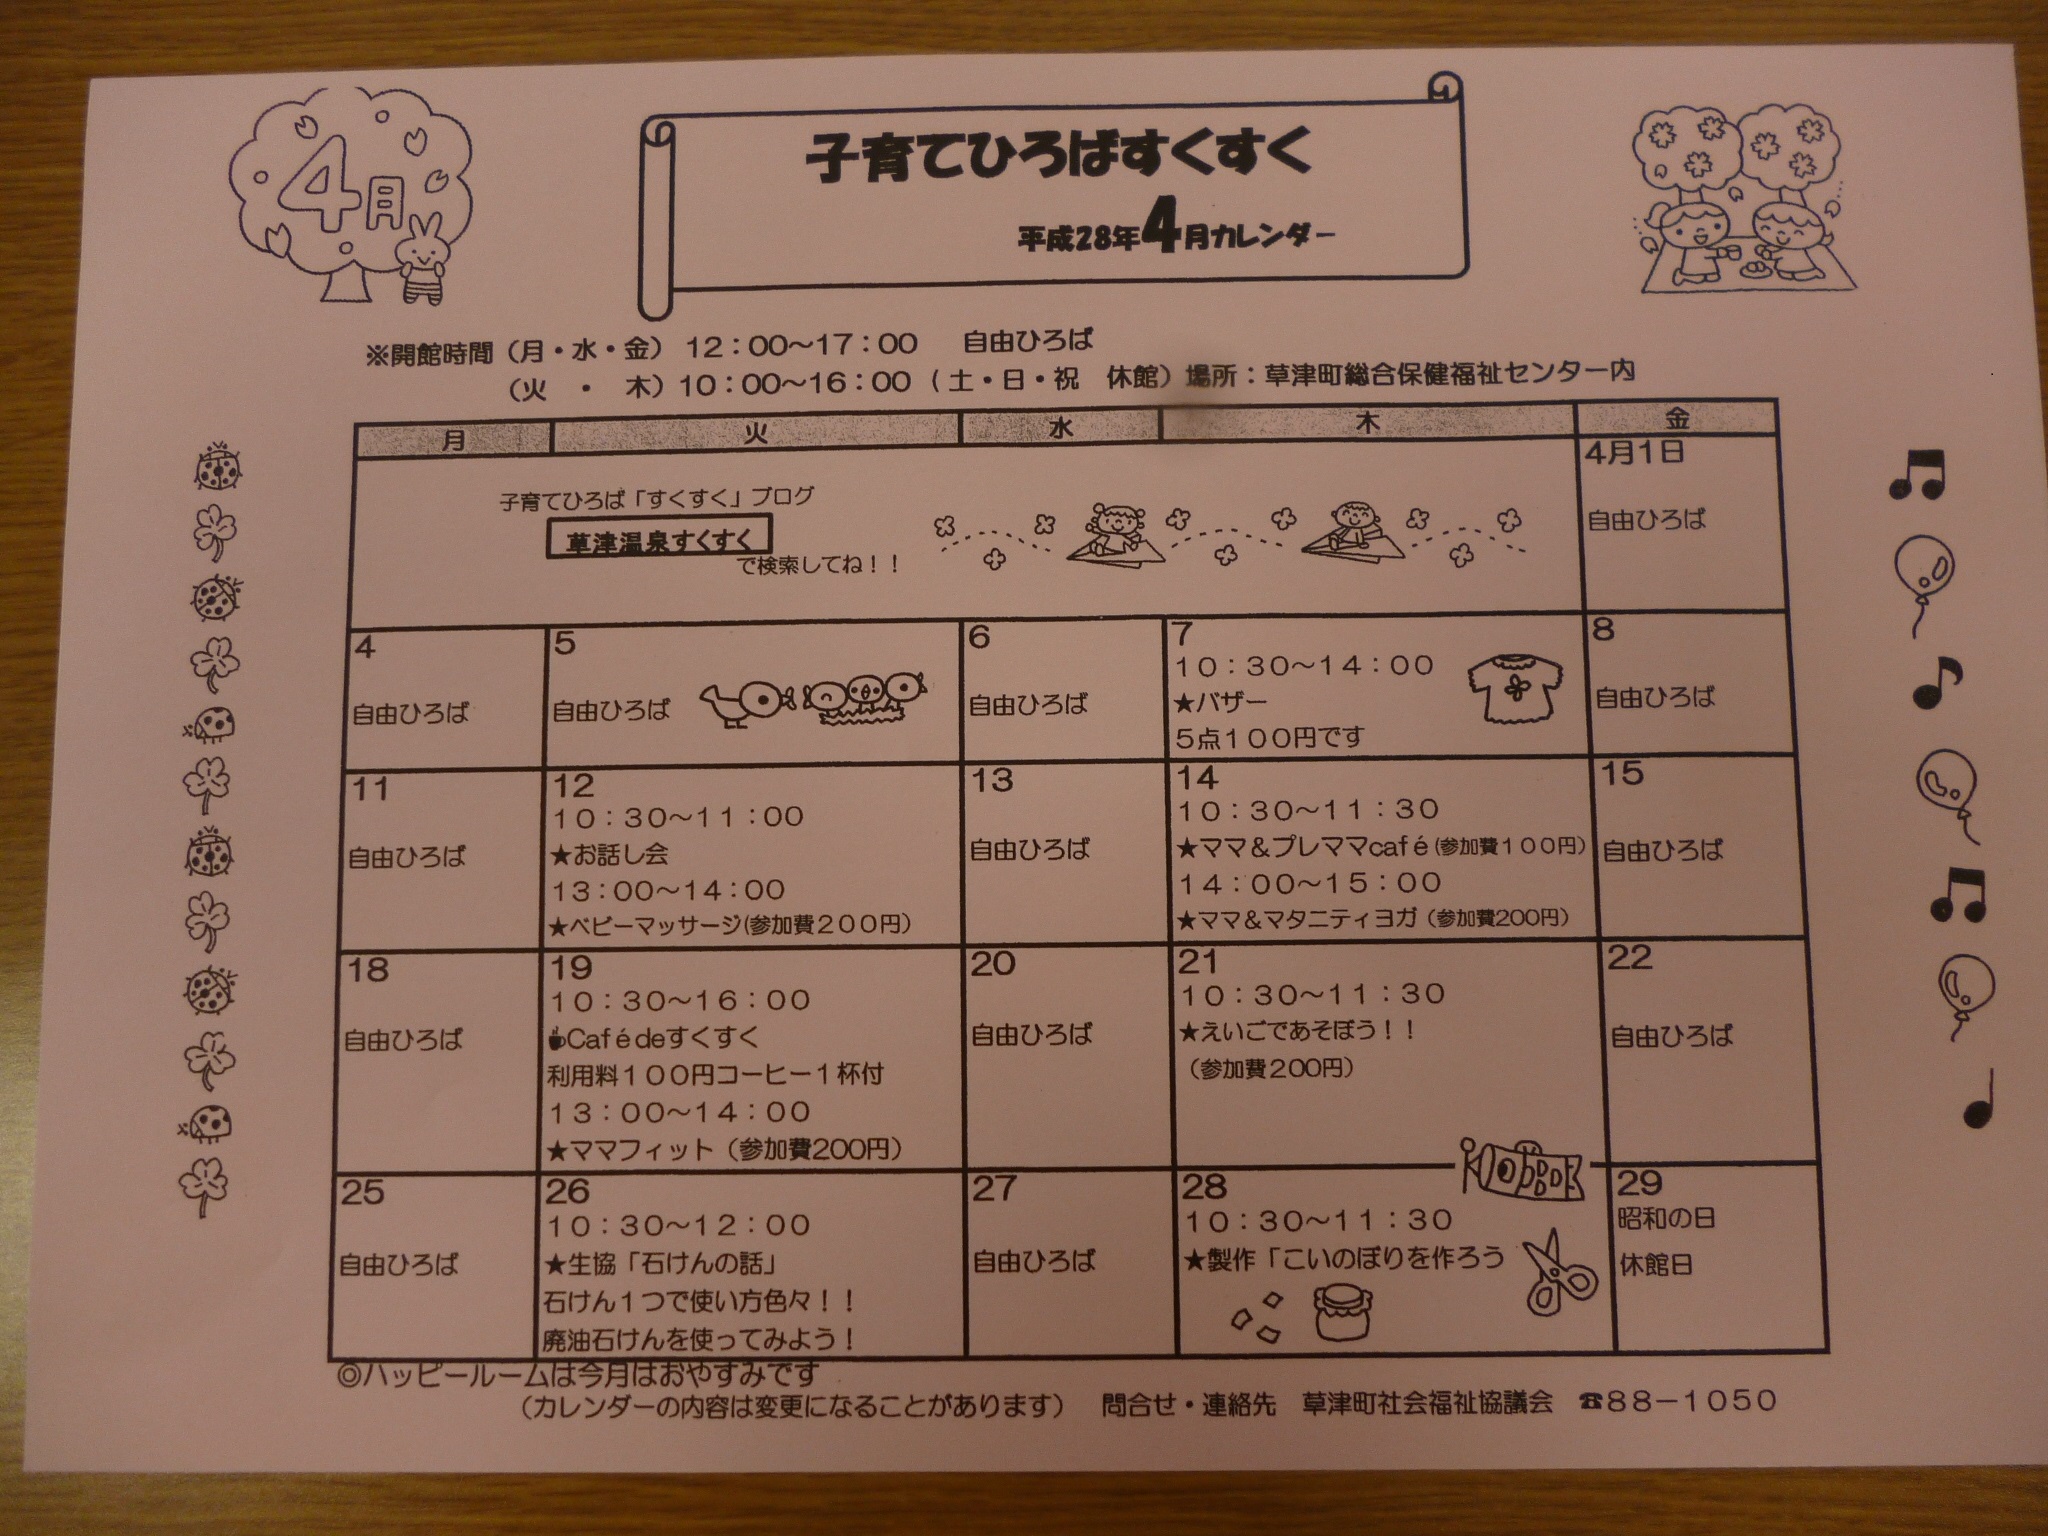 4月
子育てひろばすくすく
平成28年4月カレンダー
※開館時間（月・水・金） 12：00～17：00　自由ひろば
（火　・　木）10：00～16：00（土・日・祝　休館）場所：草津町総合保健福祉センター内
月 火 水 木 金
子育てひろば「すくすく」ブログ
草津温泉すくすく
で検索してね！！
4月1日
自由ひろば
4
自由ひろば
5
自由ひろば
6
自由ひろば
7
10：30～14：00
★バザー
5点100円です
8
自由ひろば
11
自由ひろば
12
10：30～11：00
★お話し会
13：00～14：00
★ベビーマッサージ(参加費200円）
13
自由ひろば
14
10：30～11：30
★ママ＆プレママcafé(参加費100円）
14：00～15：00
★ママ＆マタニティヨガ（参加費200円）
15
自由ひろば
18
自由ひろば
19
10：30～16：00
☕Café deすくすく
利用料100円コーヒー1杯付
13：00～14：00
★ママフィット（参加費200円）
20
自由ひろば
21
10：30～11：30
★えいごであそぼう！！
（参加費200円）
22
自由ひろば
25
自由ひろば
26
10：30～12：00
★生協「石けんの話」
石けん1つで使い方色々！！
廃油石けんを使ってみよう！
27
自由ひろば
28
10：30～11：30
★製作「こいのぼりを作ろう
29
昭和の日
休館日
◎ハッピールームは今月はおやすみです
（カレンダーの内容は変更になることがあります）　問合せ・連絡先　草津町社会福祉協議会　☎88－1050